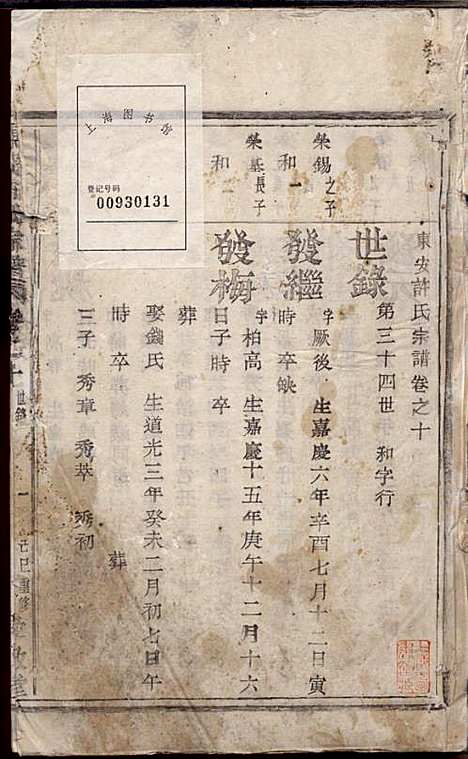 東安許氏宗譜卷之十
世錄
第三十四世 和字行
榮錫之子
和一
發繼
字厥後 生嘉慶六年辛酉七月十二日寅
時 卒缺
榮基長子
和二
發梅
字柏高 生嘉慶十五年庚午十二月十六
日子時 卒
葬
娶錢氏 生道光三年癸未二月初七日午
時 卒 葬
三子 秀章 秀萃 秀初
上海图书馆
登记号码
00930131
世錄
一
己巳重修